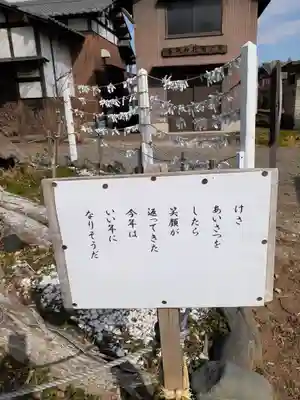 けさ
あいさつを
したら
笑顔が
返ってきた
今年は
いい年に
なりそうだ